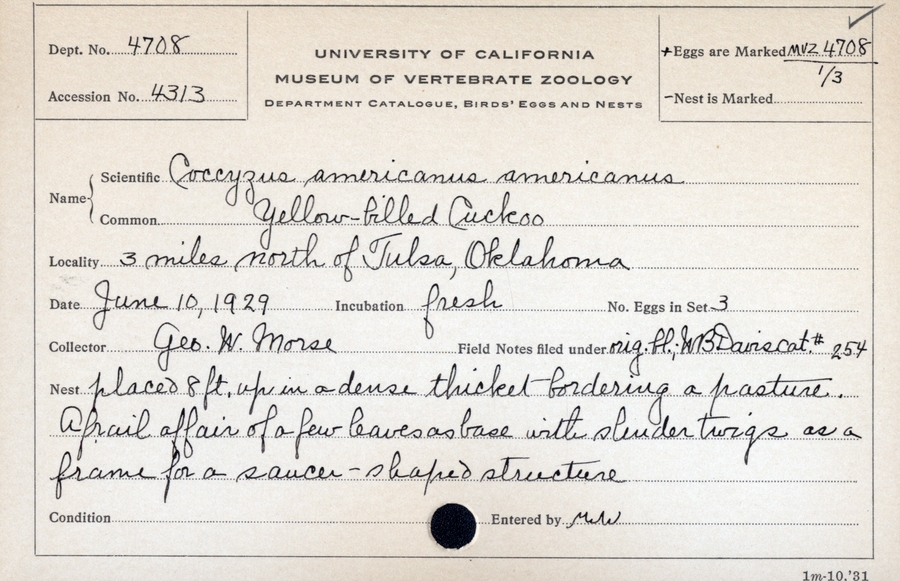 Dept. No. 4708
Accession No. 4313
UNIVERSITY OF CALIFORNIA
MUSEUM OF VERTEBRATE ZOOLOGY
DEPARTMENT CATALOGUE, BIRDS' EGGS AND NESTS
+Eggs are Marked MVZ 4708
1/3
-Nest is Marked
Name
Scientific Coccyzus americanus americanus
Common Yellow-billed Cuckoo
Locality 3 miles north of Tulsa, Oklahoma
Date June 10, 1929 Incubation fresh No. Eggs in Set 3
Collector Geo. W. Morse Field Notes filed under orig. bl.; WB Davis cat. # 254
Nest placed 8 ft. up in a dense thicket bordering a pasture.
A frail affair of a few leaves as base with slender twigs as a
frame for a saucer-shaped structure
Condition Entered by
1m-10,'31